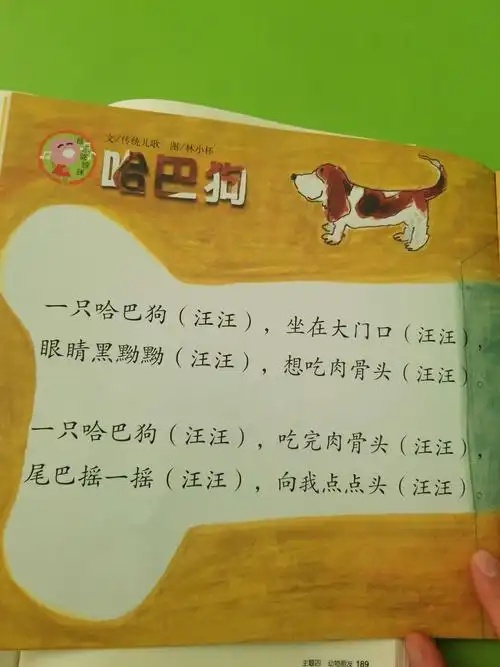 文/传统儿歌 图/林小杯
哈巴狗
一只哈巴狗（汪汪），坐在大门口（汪汪），
眼睛黑黝黝（汪汪），想吃肉骨头（汪汪）
一只哈巴狗（汪汪），吃完肉骨头（汪汪），
尾巴摇一摇（汪汪），向我点点头（汪汪）
主题四 动物朋友 189